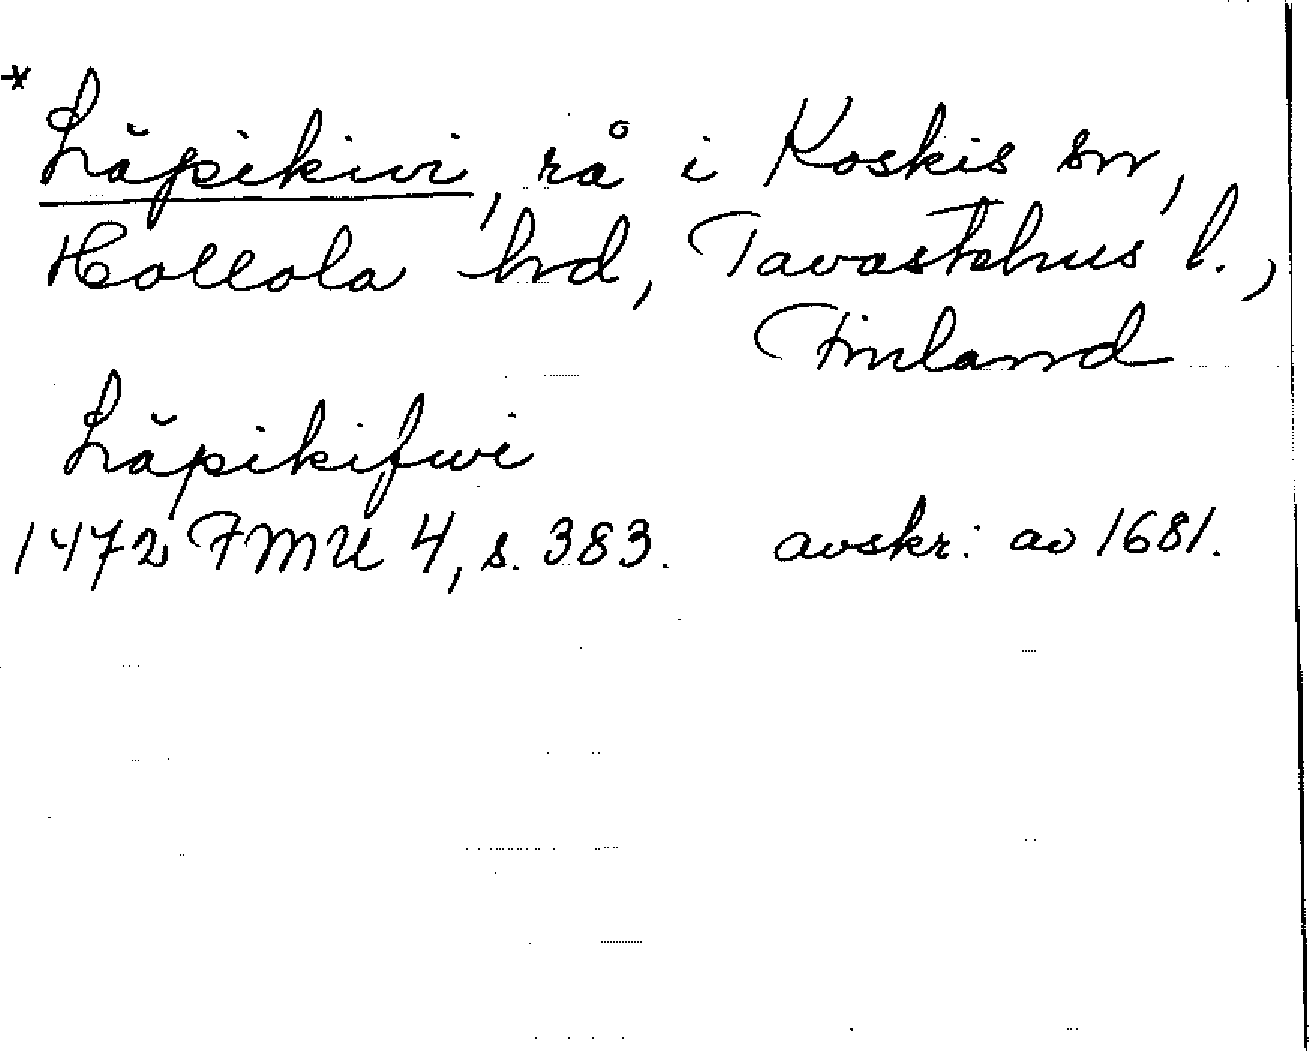 * Läpikivi, rå i Koskis sn,
Hollola hrd, Tavastehus l.,
Finland
Läpikifwi
1472 FMU 4, s. 383. avskr: av 1681.